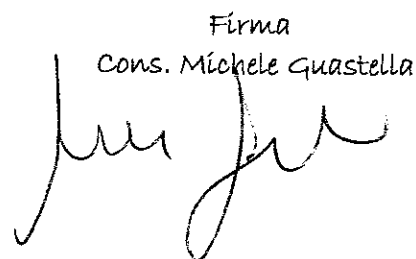 Firma
Cons. Michele Guastella